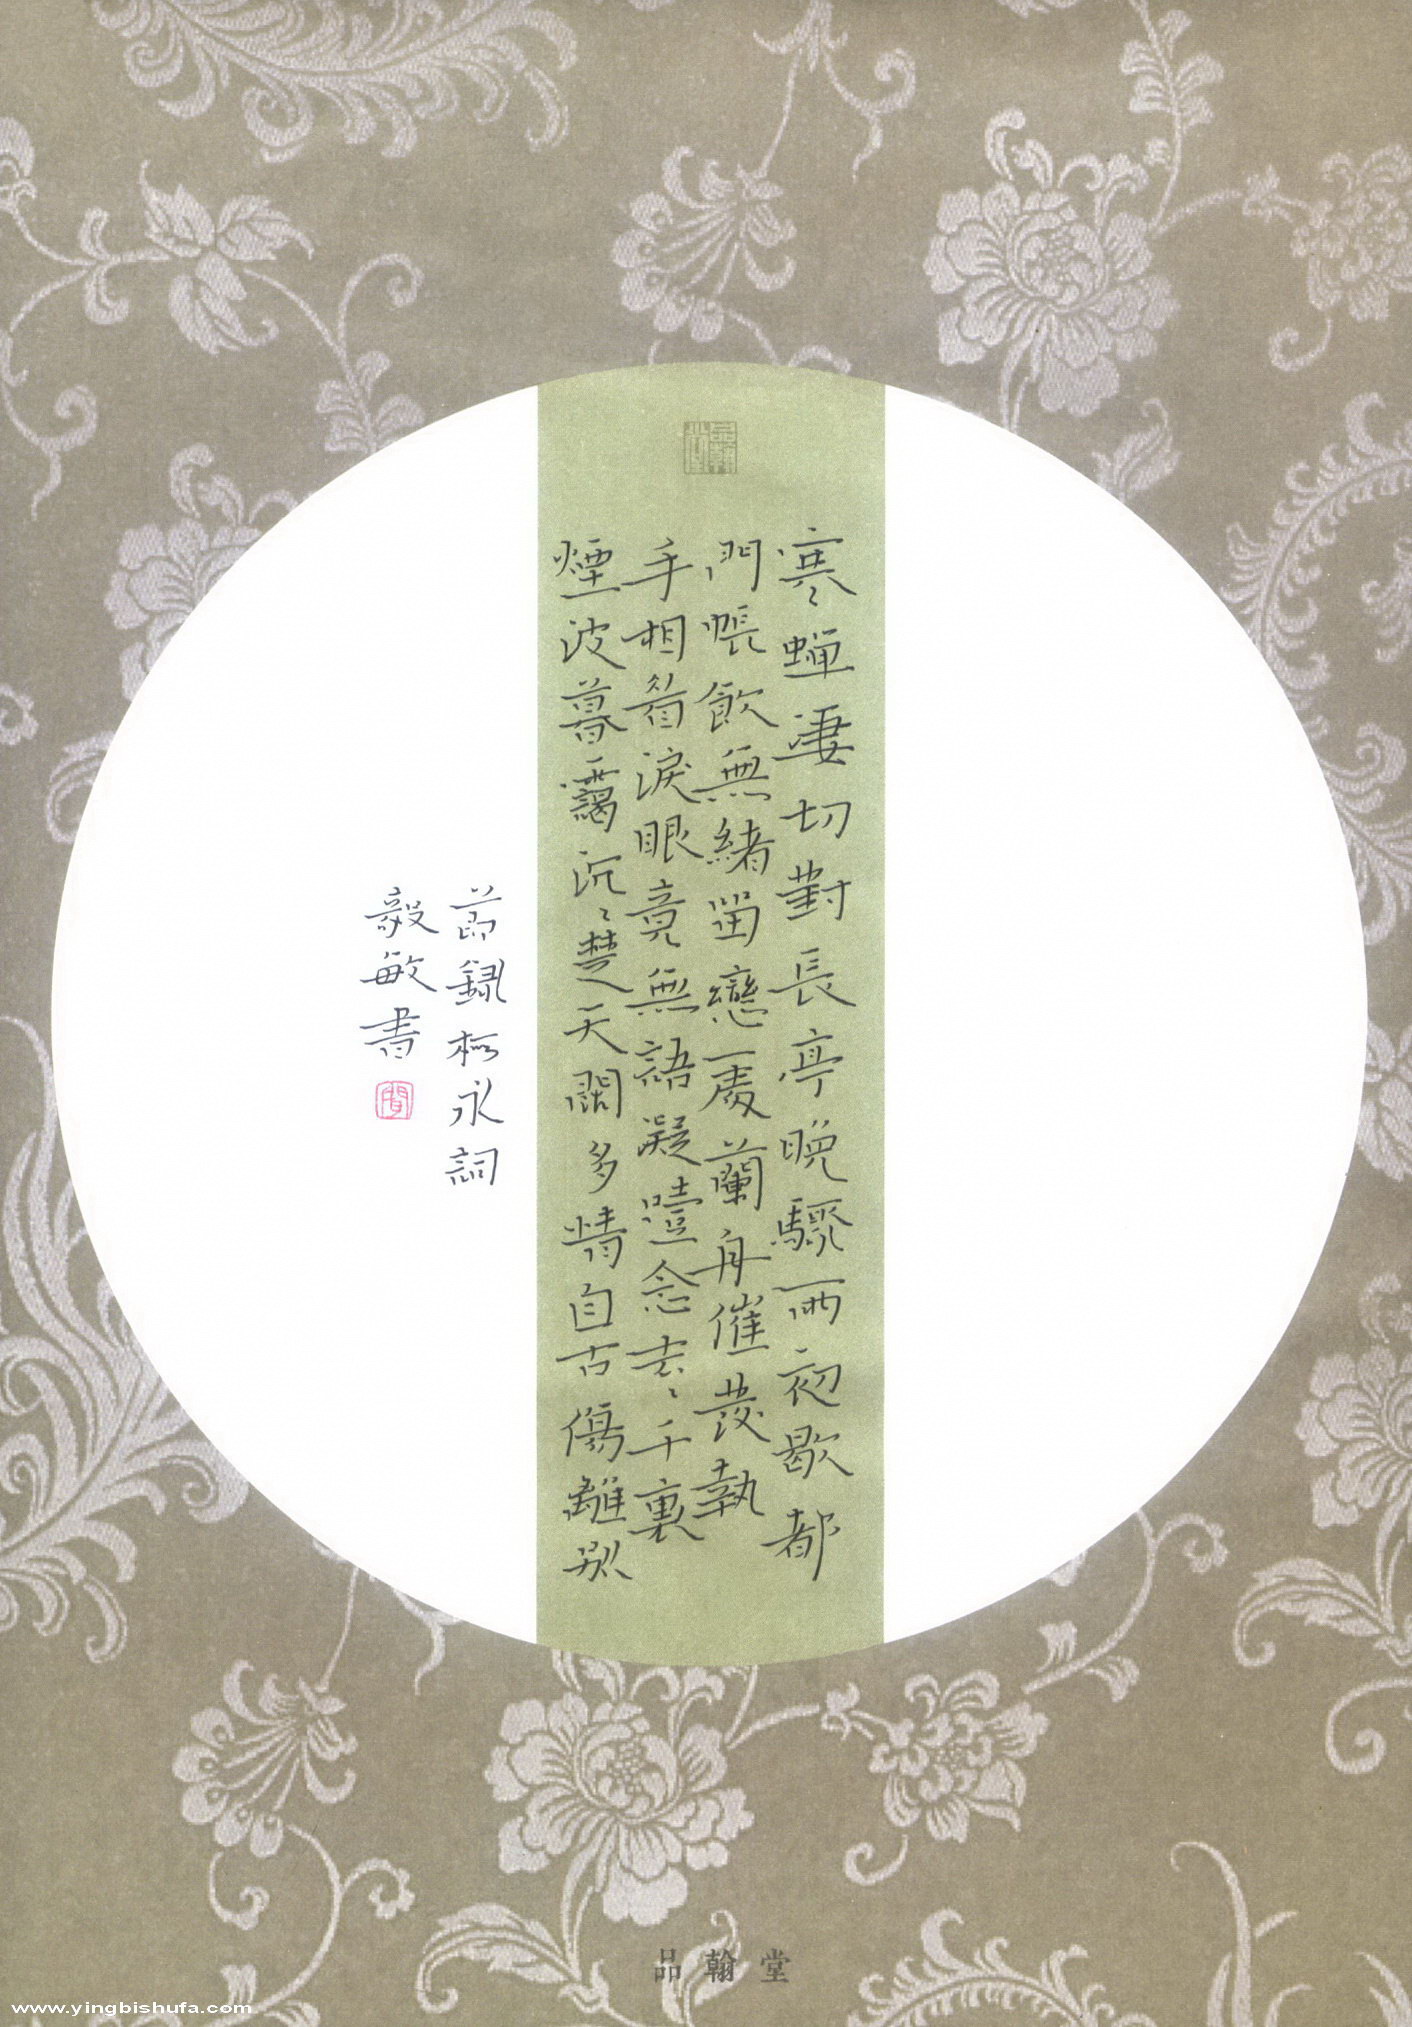 寒蝉淒切對長亭晚驟雨初歇都
門帳飲無緒留戀處蘭舟催发執
手相看淚眼竟無語凝噎念去〻千裏
煙波暮靄沉〻楚天闊多情自古傷離别
節録柳永詞
毅敏書
品翰堂
www.yingbishufa.com